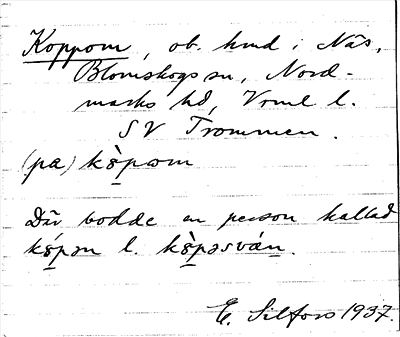 Koppom, ob. hmd i Näs,
Blomskogs sn, Nord-
marks hd, Vrml l.
SV Trommen.
(pa) kö̀pom
Där bodde en person kallad
kö́pən l. kö̀pəsván.
E. Silfors 1937.